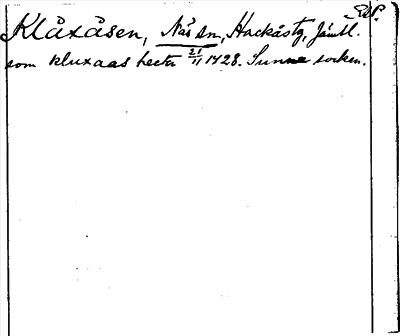 Klåxåsen, Näs sn, Hackåstg, Jämtl.
som kluxaas heeter 21/11 1428. Sunne socken.